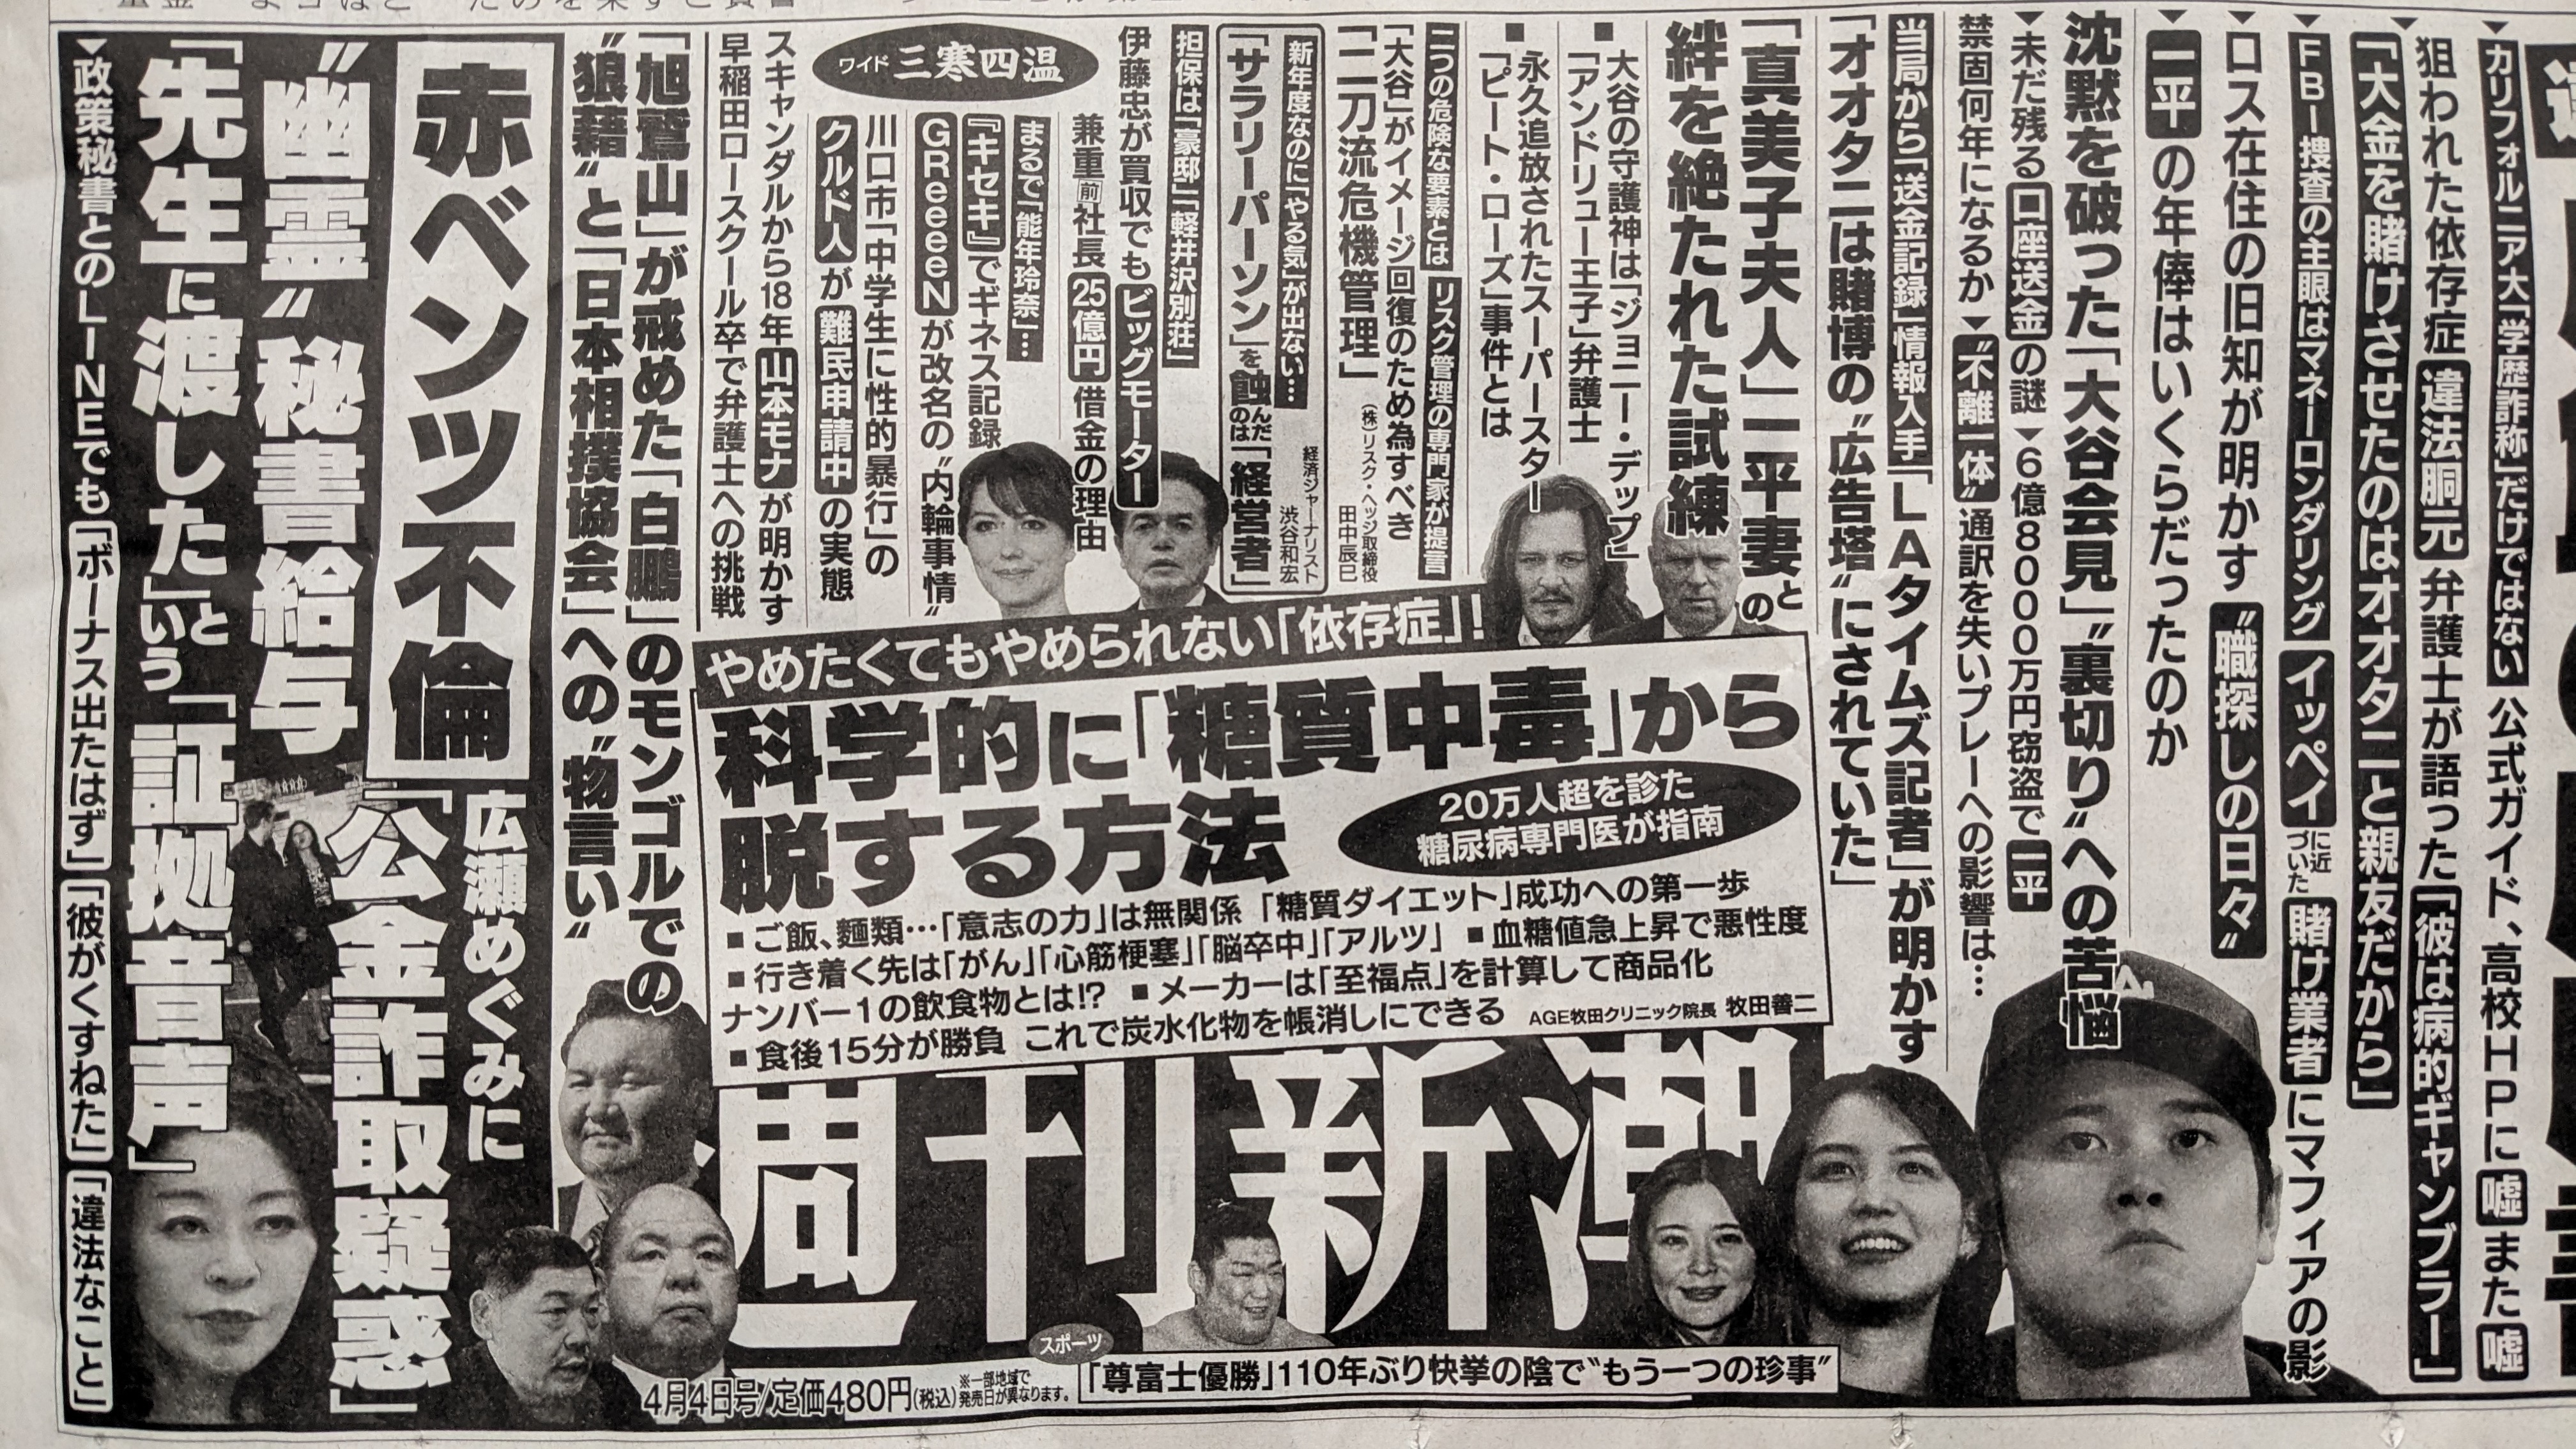 ▼カリフォルニア大「学歴詐称」だけではない 公式ガイド、高校HPに嘘また嘘
狙われた依存症 違法胴元 弁護士が語った「彼は病的ギャンブラー」
▼「大金を賭けさせたのはオオタニと親友だから」
▼FBI捜査の主眼はマネーロンダリング イッペイに近づいた賭け業者にマフィアの影
▼ロス在住の旧知が明かす“職探しの日々”
▼一平の年俸はいくらだったのか
沈黙を破った「大谷会見」“裏切り”への苦悩
▼未だ残る口座送金の謎 ▼6億8000万円窃盗で一平
禁固何年になるか ▼“不離一体”通訳を失いプレーへの影響は…
当局から「送金記録」情報入手 「LAタイムズ記者」が明かす
「オオタニは賭博の“広告塔”にされていた」
「真美子夫人」一平妻との
絆を絶たれた試練
■大谷の守護神は「ジョニー・デップ」
「アンドリュー王子」弁護士
■永久追放されたスーパースター
「ピート・ローズ」事件とは
二つの危険な要素とは リスク管理の専門家が提言
「大谷」がイメージ回復のため為すべき
「二刀流危機管理」
(株)リスク・ヘッジ取締役 田中辰巳
新年度なのに「やる気」が出ない…
「サラリーパーソン」を蝕んだのは「経営者」
経済ジャーナリスト 渋谷和宏
担保は「豪邸」「軽井沢別荘」
伊藤忠が買収でもビッグモーター
兼重前社長 25億円 借金の理由
ワイド 三寒四温
まるで「能年玲奈」…
『キセキ』でギネス記録
GReeeeNが改名の“内輪事情”
川口市「中学生に性的暴行」の
クルド人が難民申請中の実態
スキャンダルから18年 山本モナが明かす
早稲田ロースクール卒で弁護士への挑戦
「旭鷲山」が戒めた「白鵬」のモンゴルでの
“狼藉”と「日本相撲協会」への“物言い”
やめたくてもやめられない「依存症」!
科学的に「糖質中毒」から
脱する方法
20万人超を診た
糖尿病専門医が指南
■ご飯、麺類…「意志の力」は無関係 「糖質ダイエット」成功への第一歩
■行き着く先は「がん」「心筋梗塞」「脳卒中」「アルツ」 ■血糖値急上昇で悪性度
ナンバー1の飲食物とは!? ■メーカーは「至福点」を計算して商品化
■食後15分が勝負 これで炭水化物を帳消しにできる
AGE牧田クリニック院長 牧田善二
赤ベンツ不倫
広瀬めぐみに
“幽霊”秘書給与
「公金詐取疑惑」
「先生に渡した」という「証拠音声」
▼政策秘書とのLINEでも「ボーナス出たはず」「彼がくすねた」「違法なこと」
週刊新潮
スポーツ
「尊富士優勝」110年ぶり快挙の陰で“もう一つの珍事”
4月4日号/定価480円(税込)
※一部地域で
発売日が異なります。